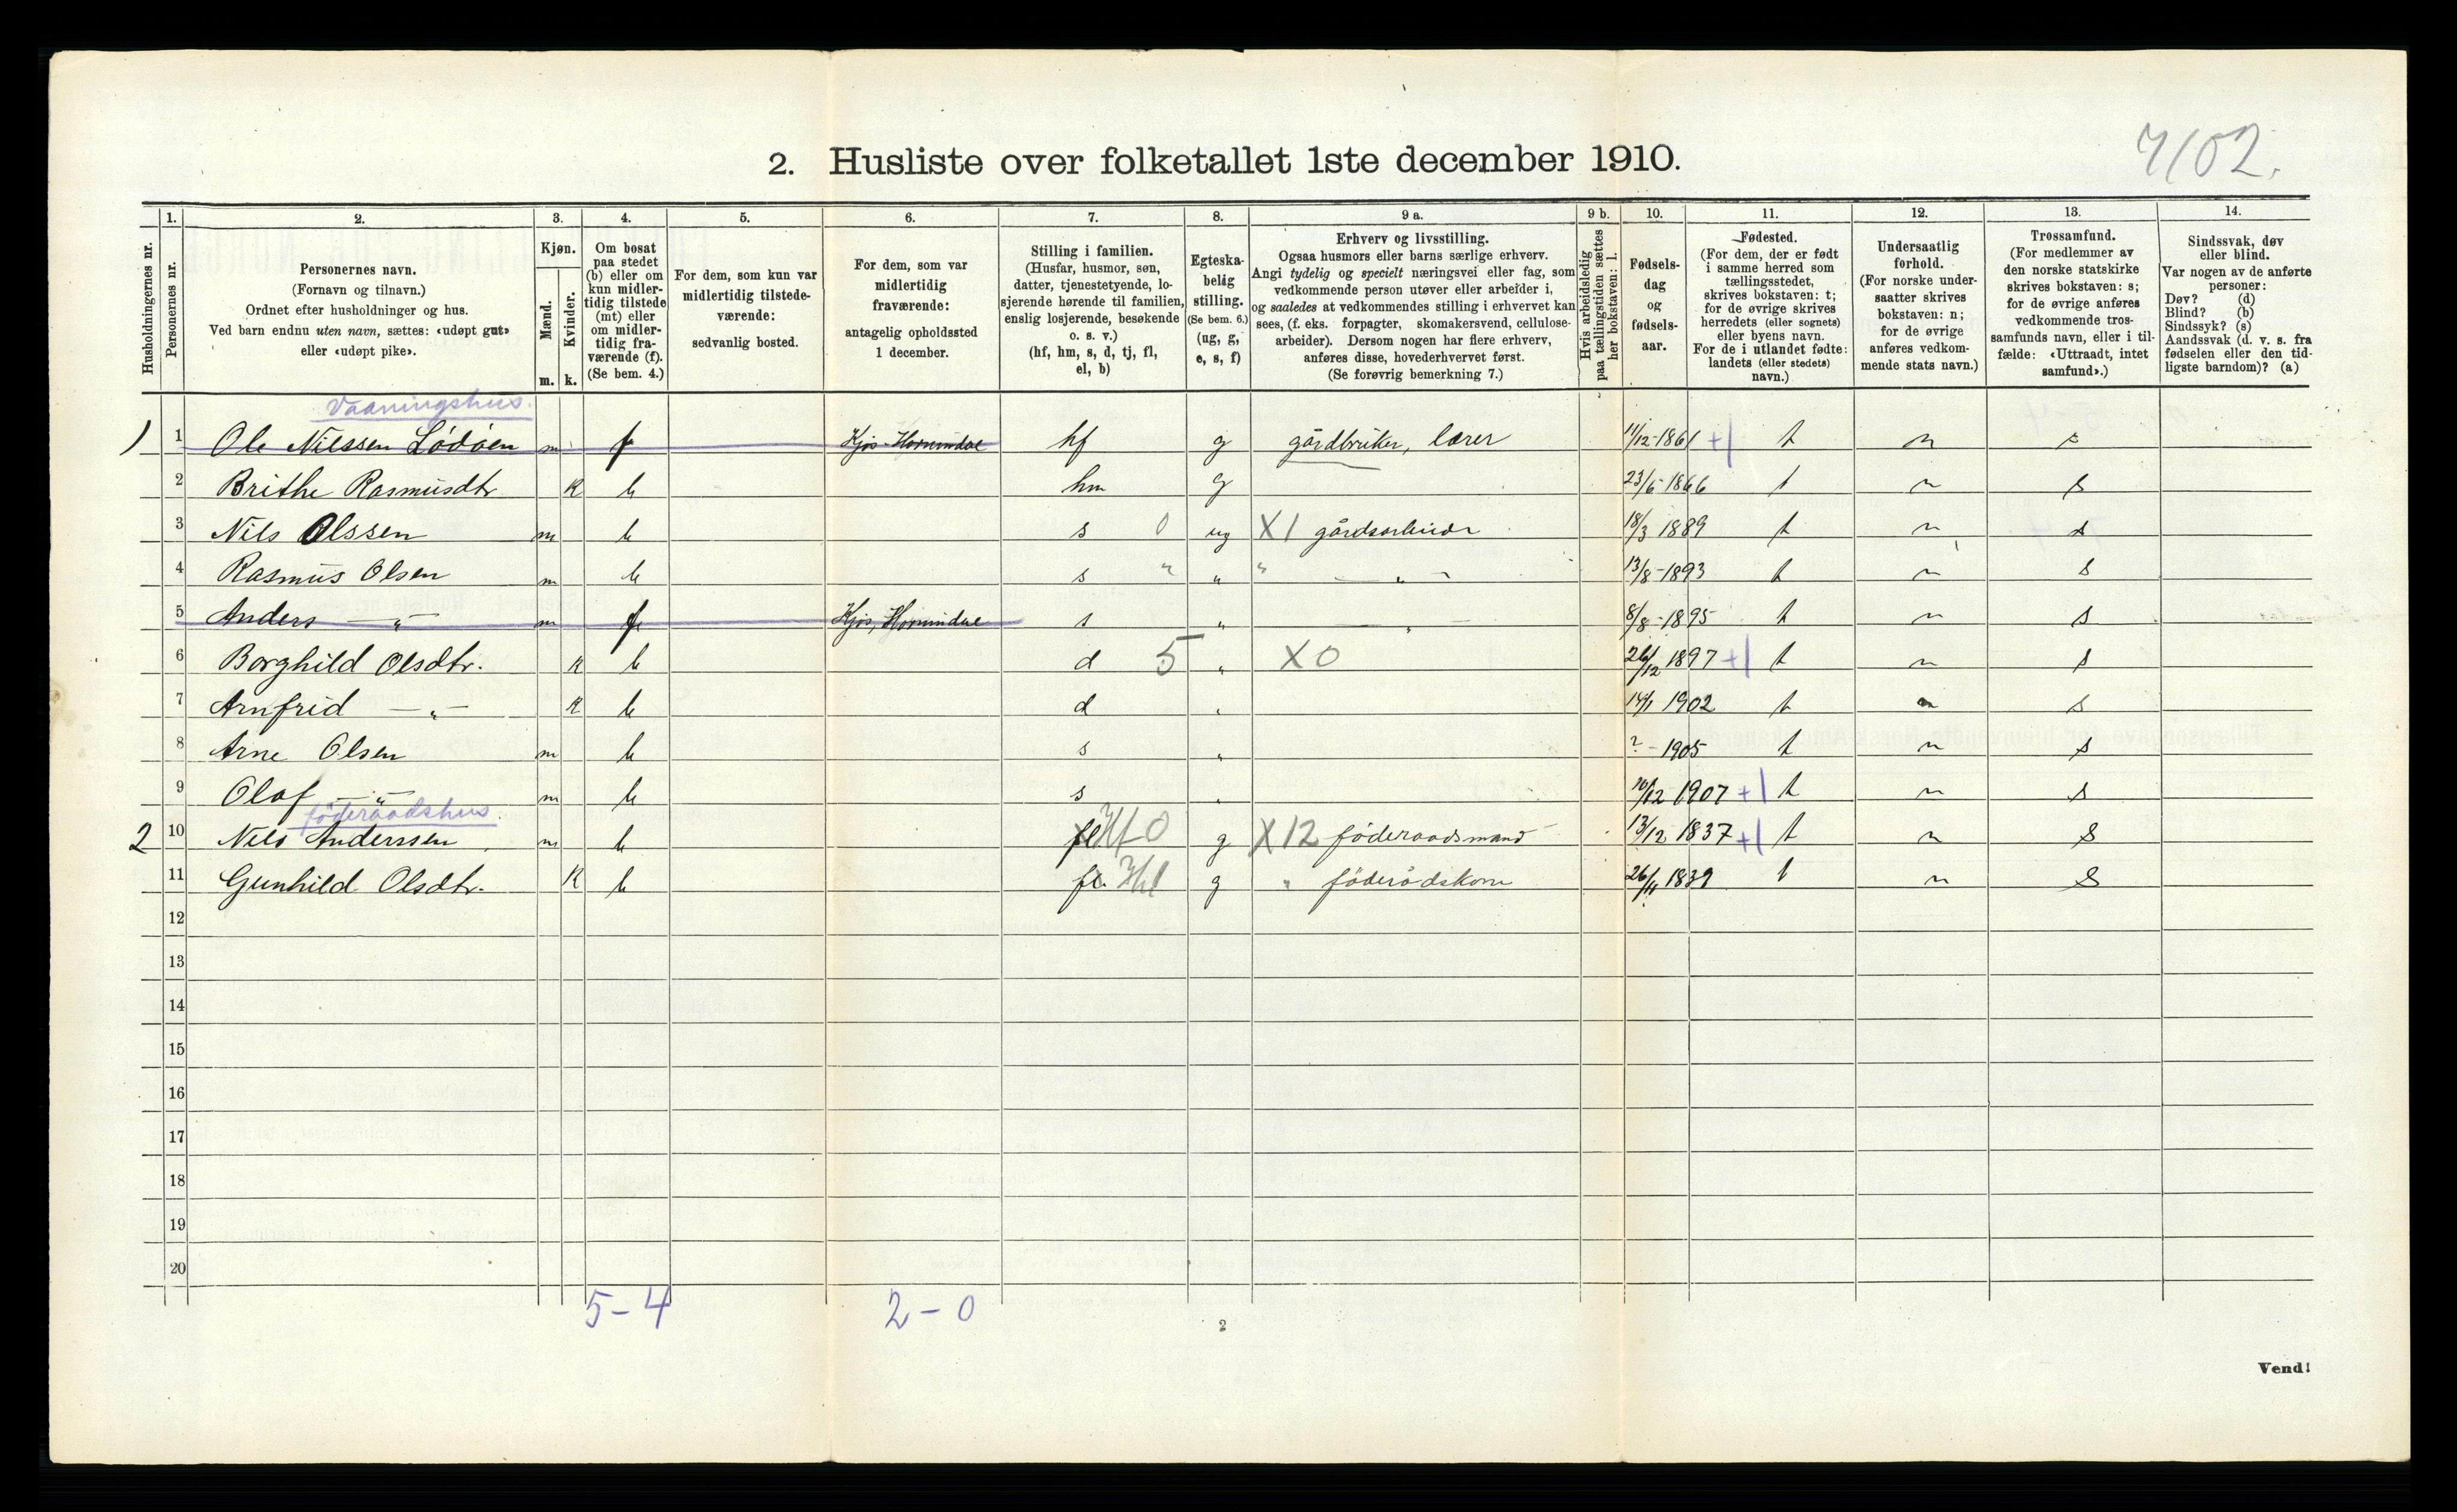 4102.
2. Husliste over folketallet 1ste december 1910.
Husholdningernes nr.
1.
Personernes nr.
2.
Personernes navn.
(Fornavn og tilnavn.)
Ordnet efter husholdninger og hus.
Ved barn endnu uten navn, sættes: «udøpt gut»
eller «udøpt pike».
3.
Kjøn.
Mænd.
Kvinder.
m. k.
4.
Om bosat
paa stedet
(b) eller om
kun midler-
tidig tilstede
(mt) eller
om midler-
tidig fra-
værende (f).
(Se bem. 4.)
5.
For dem, som kun var
midlertidig tilstede-
værende:
sedvanlig bosted.
6.
For dem, som var
midlertidig
fraværende:
antagelig opholdssted
1 december.
7.
Stilling i familien.
(Husfar, husmor, søn,
datter, tjenestetyende, lo-
sjerende hørende til familien,
enslig losjerende, besøkende
o. s. v.)
(hf, hm, s, d, tj, fl,
el, b)
8.
Egteska-
belig
stilling.
(Se bem. 6.)
(ug, g,
e, s, f)
9 a.
Erhverv og livsstilling.
Ogsaa husmors eller barns særlige erhverv.
Angi tydelig og specielt næringsvei eller fag, som
vedkommende person utøver eller arbeider i,
og saaledes at vedkommendes stilling i erhvervet kan
sees, (f. eks. forpagter, skomakersvend, cellulose-
arbeider). Dersom nogen har flere erhverv,
anføres disse, hovederhvervet først.
(Se forøvrig bemerkning 7.)
9 b.
Hvis arbeidsledig
paa tællingstiden sættes
her bokstaven: l.
10.
Fødsels-
dag
og
fødsels-
aar.
11.
Fødested.
(For dem, der er født
i samme herred som
tællingsstedet,
skrives bokstaven: t;
for de øvrige skrives
herredets (eller sognets)
eller byens navn.
For de i utlandet fødte:
landets (eller stedets)
navn.)
12.
Undersaatlig
forhold.
(For norske under-
saatter skrives
bokstaven: n;
for de øvrige
anføres vedkom-
mende stats navn.)
13.
Trossamfund.
(For medlemmer av
den norske statskirke
skrives bokstaven: s;
for de øvrige anføres
vedkommende tros-
samfunds navn, eller i til-
fælde: «Uttraadt, intet
samfund».)
14.
Sindssvak, døv
eller blind.
Var nogen av de anførte
personer:
Døv? (d)
Blind? (b)
Sindssyk? (s)
Aandssvak (d. v. s. fra
fødselen eller den tid-
ligste barndom)? (a)
Vaaningshus.
1) 1 Ole Nilssen Lödöen m f Kjös-Hornindae hf g gårdbruker, lærer 11/12-1861 +1 t n s
2 Brithe Rasmusdtr k b hm g 23/6-1866 t n s
3 Nils Olssen m b s 0 ug X1 gårdsarbeider 18/3 1889 t n s
4 Rasmus Olsen m b s " " " — " — 13/8-1893 t n s
5 Anders — " — m f Kjøs, Hornindae s " — " — 8/8-1895 t n s
6 Borghild Olsdtr. k b d 5 " X0 26/12 1897 +1 t n s
7 Arnfrid — " — k b d " 14/1 1902 t n s
8 Arne Olsen m b s " ? - 1905 t n s
9 Olaf — " — m b s " 10/12 1907 +1 t n s
föderaadshus.
2 10 Nils Anderssen m b fl Hf 0 g X12 föderaadsmand 13/12 1837 +1 t n s
11 Gunhild Olsdtr. k b fl. g " föderådskone 26/11 1839 t n s
12
13
14
15
16
17
18
19
20
5-4 2-0
2
Vend!